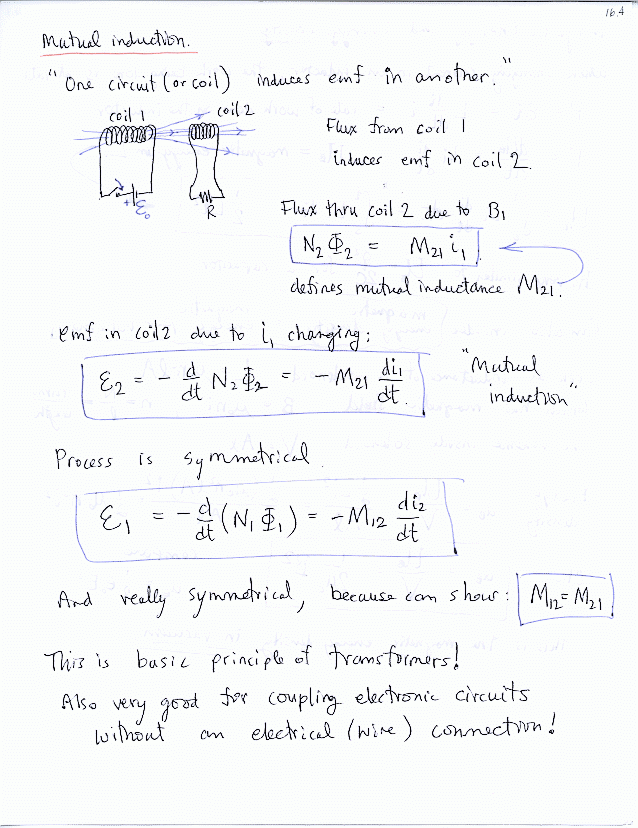 16.4
Mutual induction.
"One circuit (or coil) induces emf in another."
coil 1
coil 2
Flux from coil 1
induces emf in coil 2.
+
ℰ₀
R
Flux thru coil 2 due to B₁
N₂ Φ₂ = M₂₁ i₁
defines mutual inductance M₂₁.
emf in coil 2 due to i₁ changing:
ℰ₂ = - d/dt N₂ Φ₂ = - M₂₁ di₁/dt.
"Mutual
induction"
Process is symmetrical.
ℰ₁ = - d/dt (N₁ Φ₁) = - M₁₂ di₂/dt
And really symmetrical, because can show: M₁₂ = M₂₁
This is basic principle of transformers!
Also very good for coupling electronic circuits
without an electrical (wire) connection!